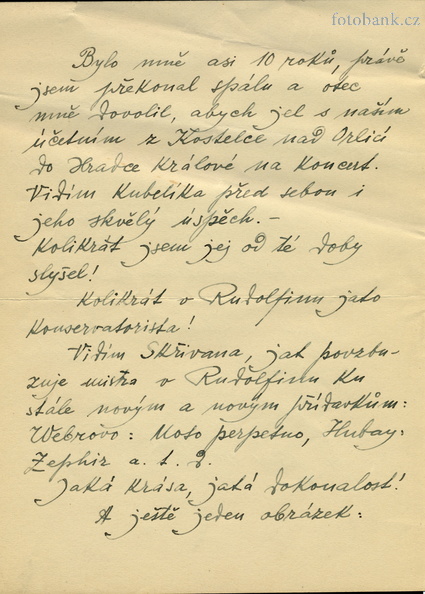 fotobank.cz
Bylo mně asi 10 roků, právě
jsem překonal spálu a otec
mně dovolil, abych jel s naším
účetním z Kostelce nad Orlicí
do Hradce Králové na koncert.
Vidím Kubelíka před sebou i
jeho skvělý úspěch.-
Kolikrát jsem jej od té doby
slyšel!
Kolikrát v Rudolfinu jako
konservatorista!
Vidím Skřivana, jak povzbu-
zuje mistra v Rudolfinu ku
stále novým a novým přídavkům:
Webrovo: Moto perpetno, Hubay:
Zephir a. t. d.
Jaká krása, jaká dokonalost!
A ještě jeden obrázek: